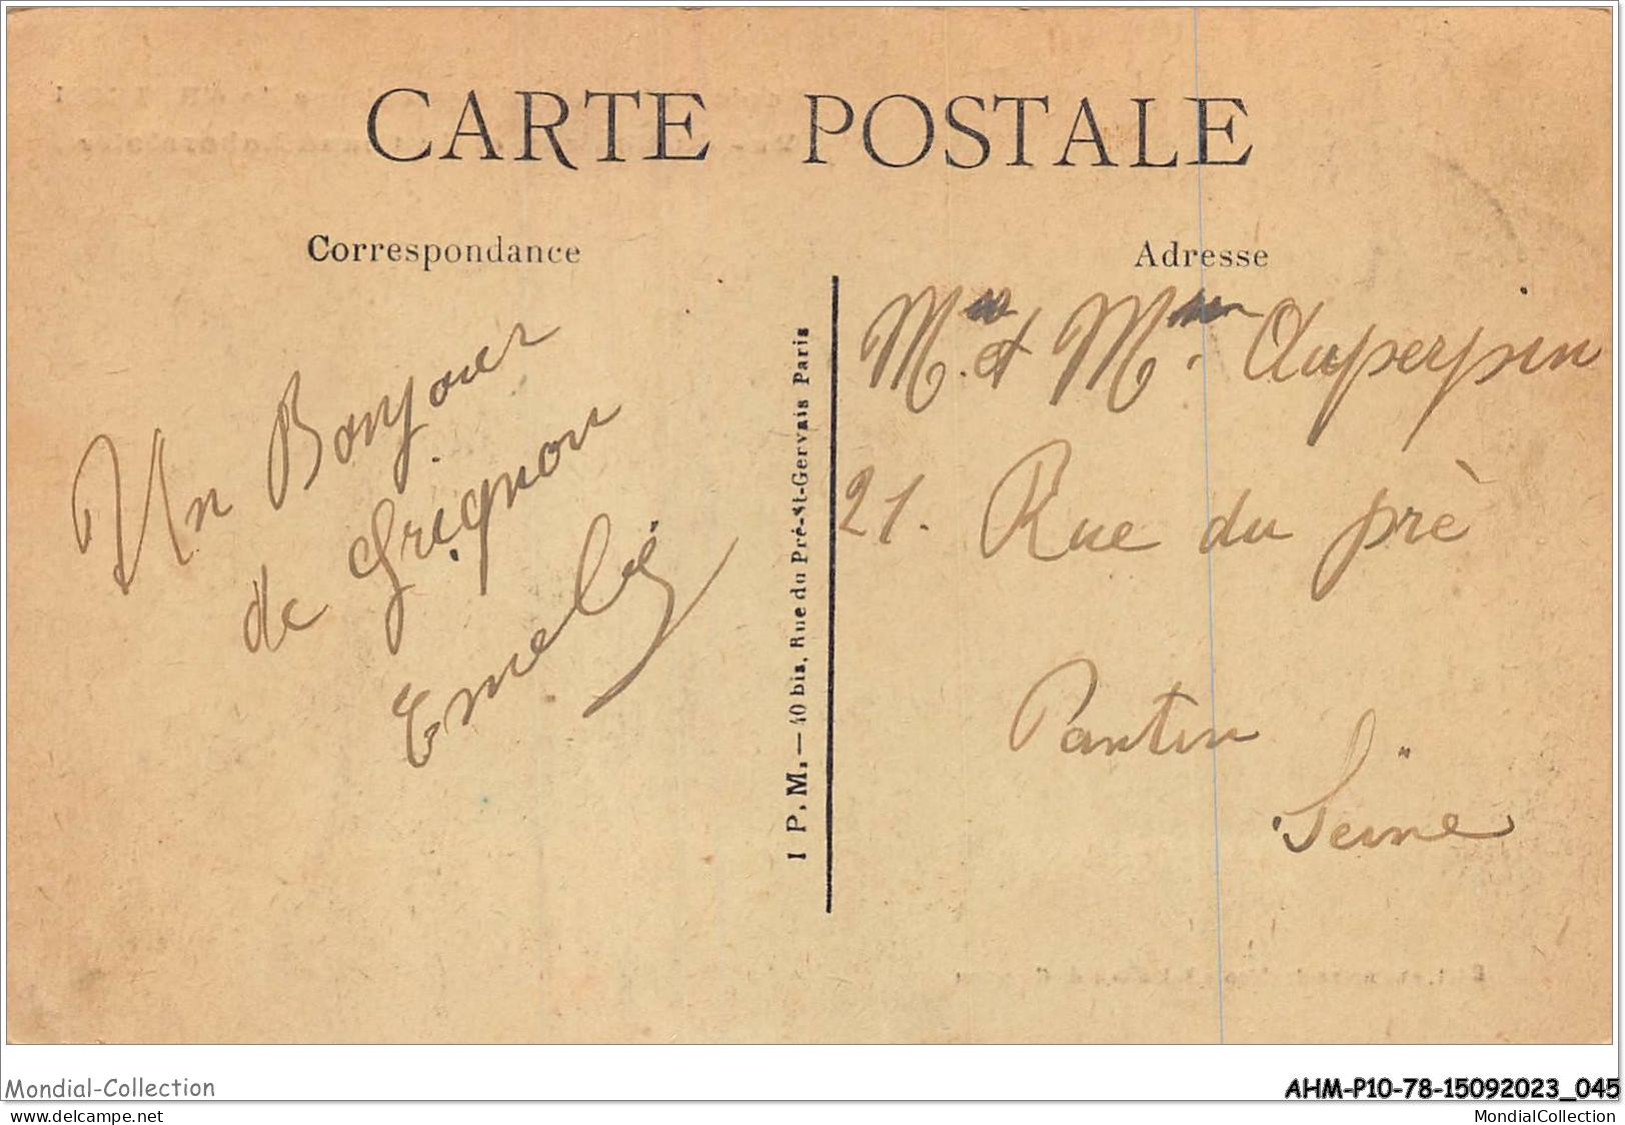 CARTE POSTALE
Correspondance
Adresse
Un Bonjour
de Grignon
I P.M. — 40 bis, Rue du Pré-St-Gervais Paris
Mr et Mme Auperpin
21. Rue du prè
Pantin
Seine
Mondial-Collection
AHM-P10-78-15092023_045
www.delcampe.net
MondialCollection